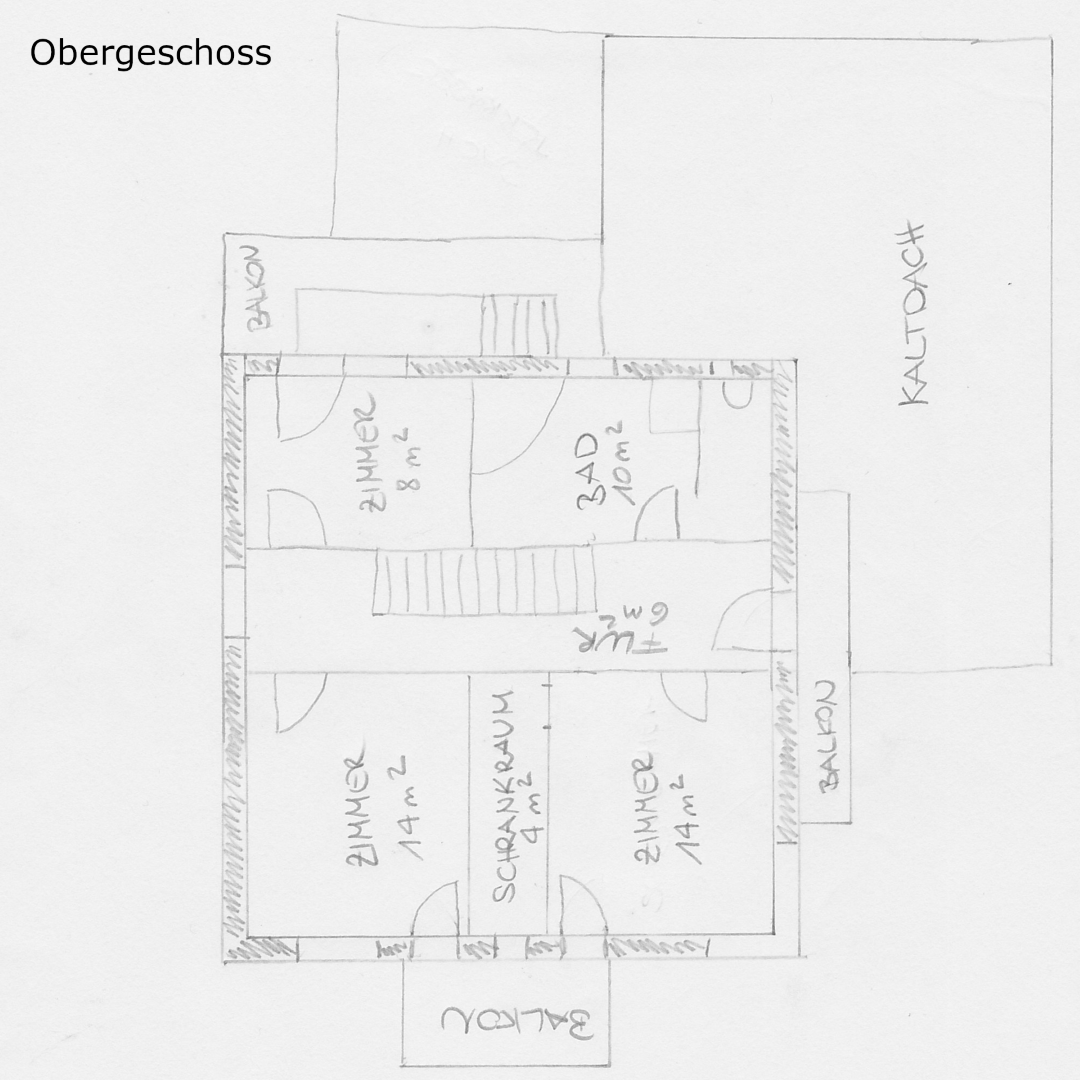 Obergeschoss
BALKON
KALTDACH
ZIMMER
8 m²
BAD
10 m²
FLUR
6 m²
ZIMMER
14 m²
SCHRANKRAUM
4 m²
ZIMMER
14 m²
BALKON
BALKON